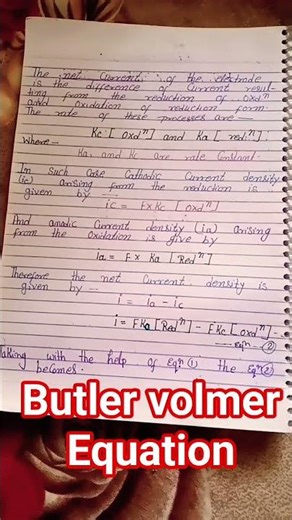 The net current, i of the electrode
is the difference of current resul-
ting from the reduction of oxdⁿ
and oxidation of reduction form.
The rate of these processes are —
Kc [oxdⁿ] and Ka [redⁿ]
Where —
Ka, and Kc are rate constant.
In such case Cathodic Current density
(ic) arising from the reduction is
given by —
ic = F×Kc [oxdⁿ]
And anodic Current density (ia) arising
from the oxidation is give by
ia = F × Ka [Redⁿ]
Therefore the net current density is
given by —
i = ia - ic
i = FKa [Redⁿ] - FKc [oxdⁿ] -
—— eqⁿ ②
Taking with the help of eqⁿ ① the Eqⁿ②
becomes.
Butler volmer
Equation